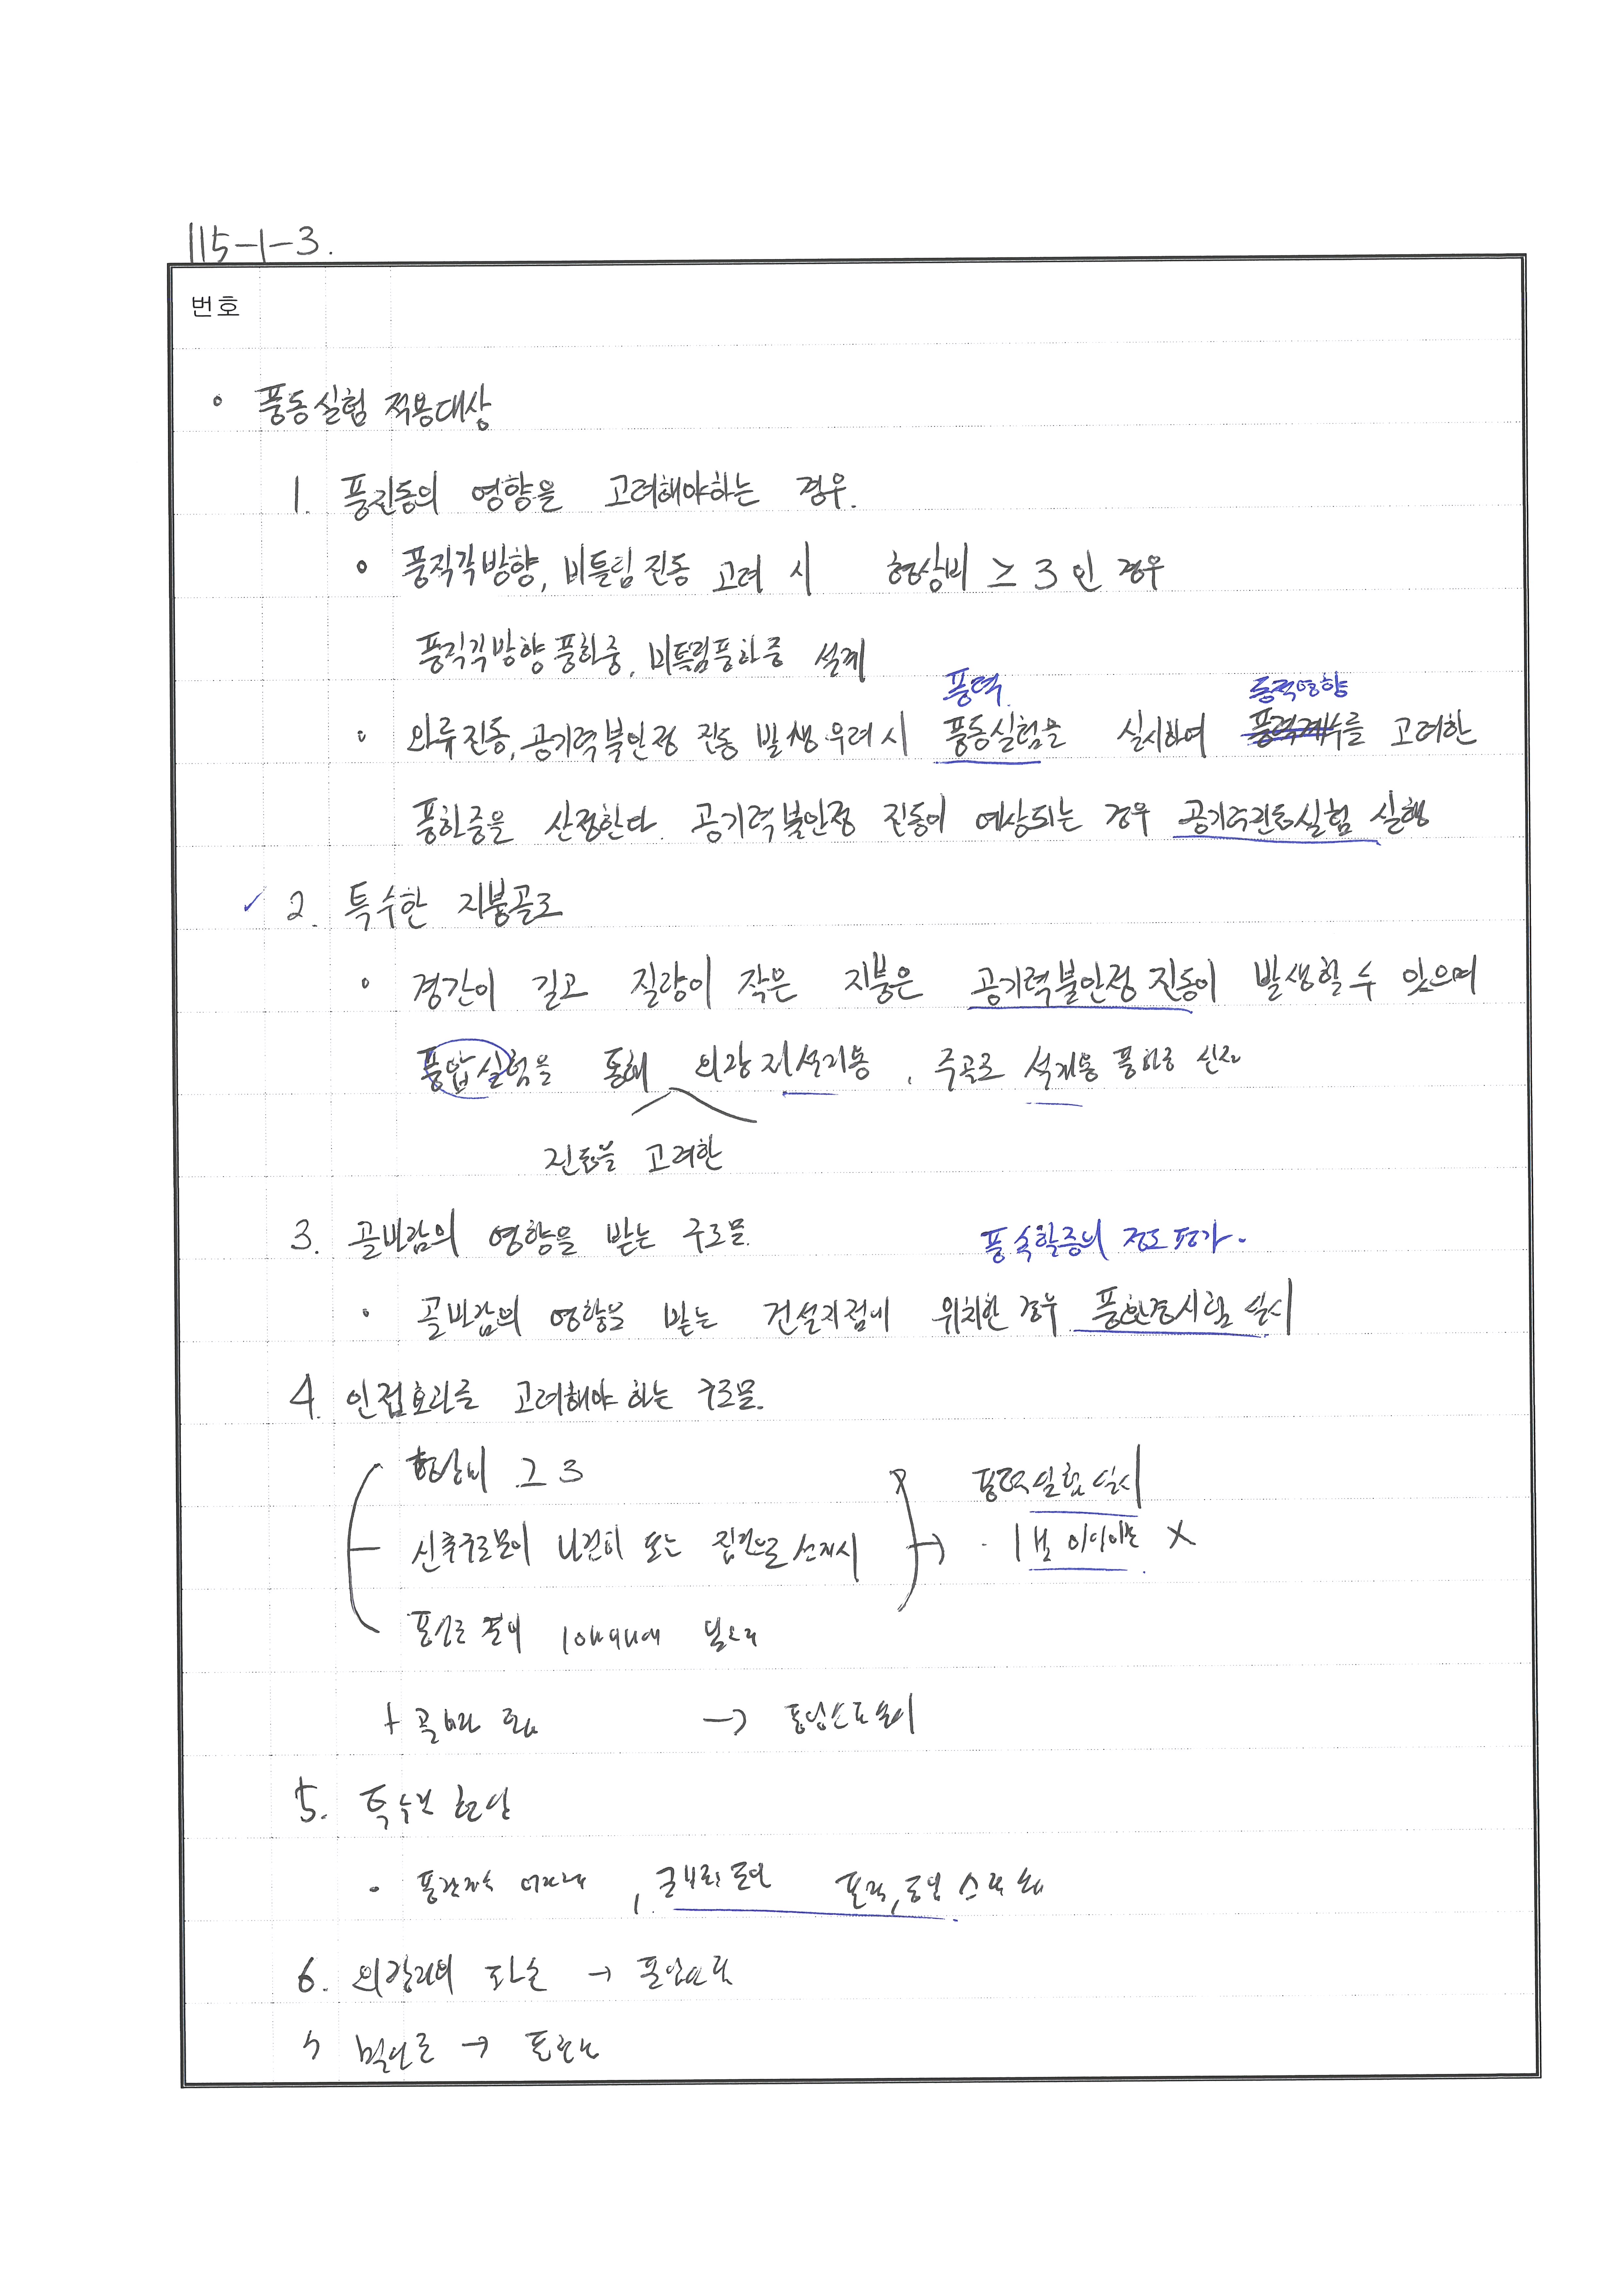 115-1-3.
번호
• 풍동실험 적용대상
1. 풍진동의 영향을 고려해야하는 경우.
• 풍직각방향, 비틀림진동 고려 시 형상비 ≥ 3 인 경우
풍직각방향풍하중, 비틀림풍하중 설계
풍력 동적영향
• 와류진동, 공기력불안정 진동 발생우려시 풍동실험을 실시하여 풍력계수를 고려한
풍하중을 산정한다. 공기력불안정 진동이 예상되는 경우 공기력진동실험 실행
✓ 2. 특수한 지붕골조
• 경간이 길고 질량이 작은 지붕은 공기력불안정 진동이 발생할 수 있으며
풍압실험을 통해 외장재설계용, 주골조 설계용 풍하중 산정
진동을 고려한
3. 골바람의 영향을 받는 구조물. 풍속할증의 정도 평가.
• 골바람의 영향을 받는 건설지점에 위치한 경우 풍환경시험 실시
4. 인접효과를 고려해야 하는 구조물.
형상비 ≥ 3
신축구조물이 나란히 또는 집단으로 선재시 → · 1변 이하는 X
풍력실험실시
+ 골바람 →
5. 특수한 형상
•
6. 외장재의 파손 →